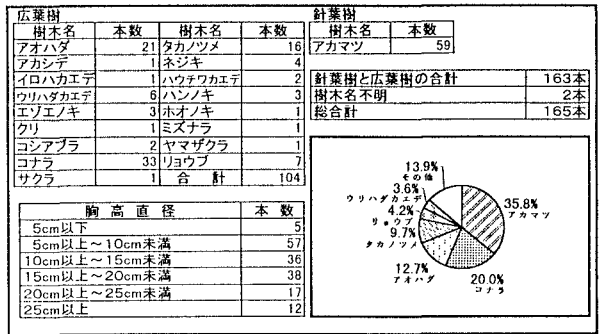 広葉樹
樹木名 本数 樹木名 本数
アオハダ 21 タカノツメ 16
アカシデ 1 ネジキ 4
イロハカエデ 1 ハウチワカエデ 2
ウリハダカエデ 6 ハンノキ 3
エゾエノキ 3 ホオノキ 1
クリ 1 ミズナラ 1
コシアブラ 2 ヤマザクラ 1
コナラ 33 リョウブ 7
サクラ 1 合計 104
針葉樹
樹木名 本数
アカマツ 59
針葉樹と広葉樹の合計 163本
樹木名不明 2本
総合計 165本
胸高直径 本数
5cm以下 5
5cm以上～10cm未満 57
10cm以上～15cm未満 36
15cm以上～20cm未満 38
20cm以上～25cm未満 17
25cm以上 12
13.9%
その他
3.6%
ウリハダカエデ
4.2%
リョウブ
9.7%
タカノツメ
12.7%
アオハダ
20.0%
コナラ
35.8%
アカマツ